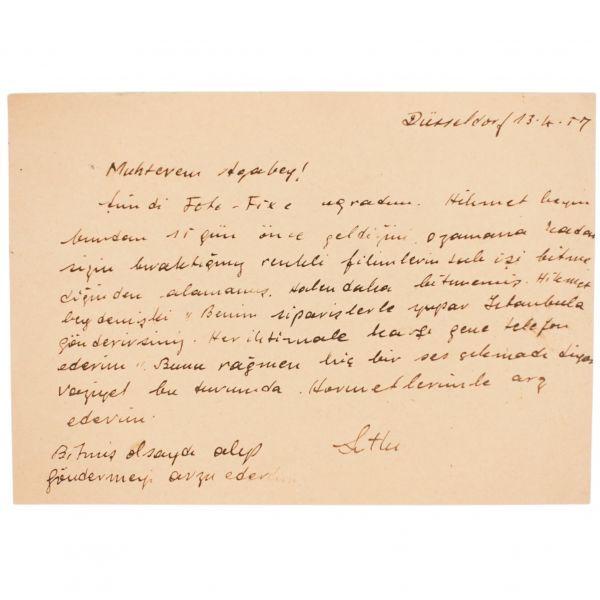 Düsseldorf 13.4.57
Muhterem Agabey!
Şimdi Foto-Fixe ugradım. Hikmet beyin
bundan 15 gün önce geldiğini, ozamana kadar
sizin bıraktığınız renkli filimlerin işi bitme
diğinden alamamış. Halendaha bitmemiş. Hikmet
bey demişki "Benim siparişlerle yapar Istanbula
gönderirsiniz. Her ihtimale karşı gene telefon
ederim". Bunu rağmen hiç bir ses çıkmadı diyor
vaziyet bu durumda. Hörmetlerimle arz
ederim.
Bitmis olsaydı alıp
göndermeyi arzu ederdim